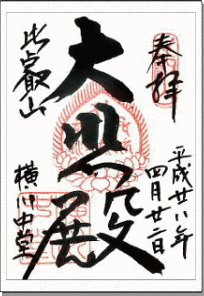 奉拝
平成廿八年
四月廿二日
大悲殿
比叡山
横川中堂